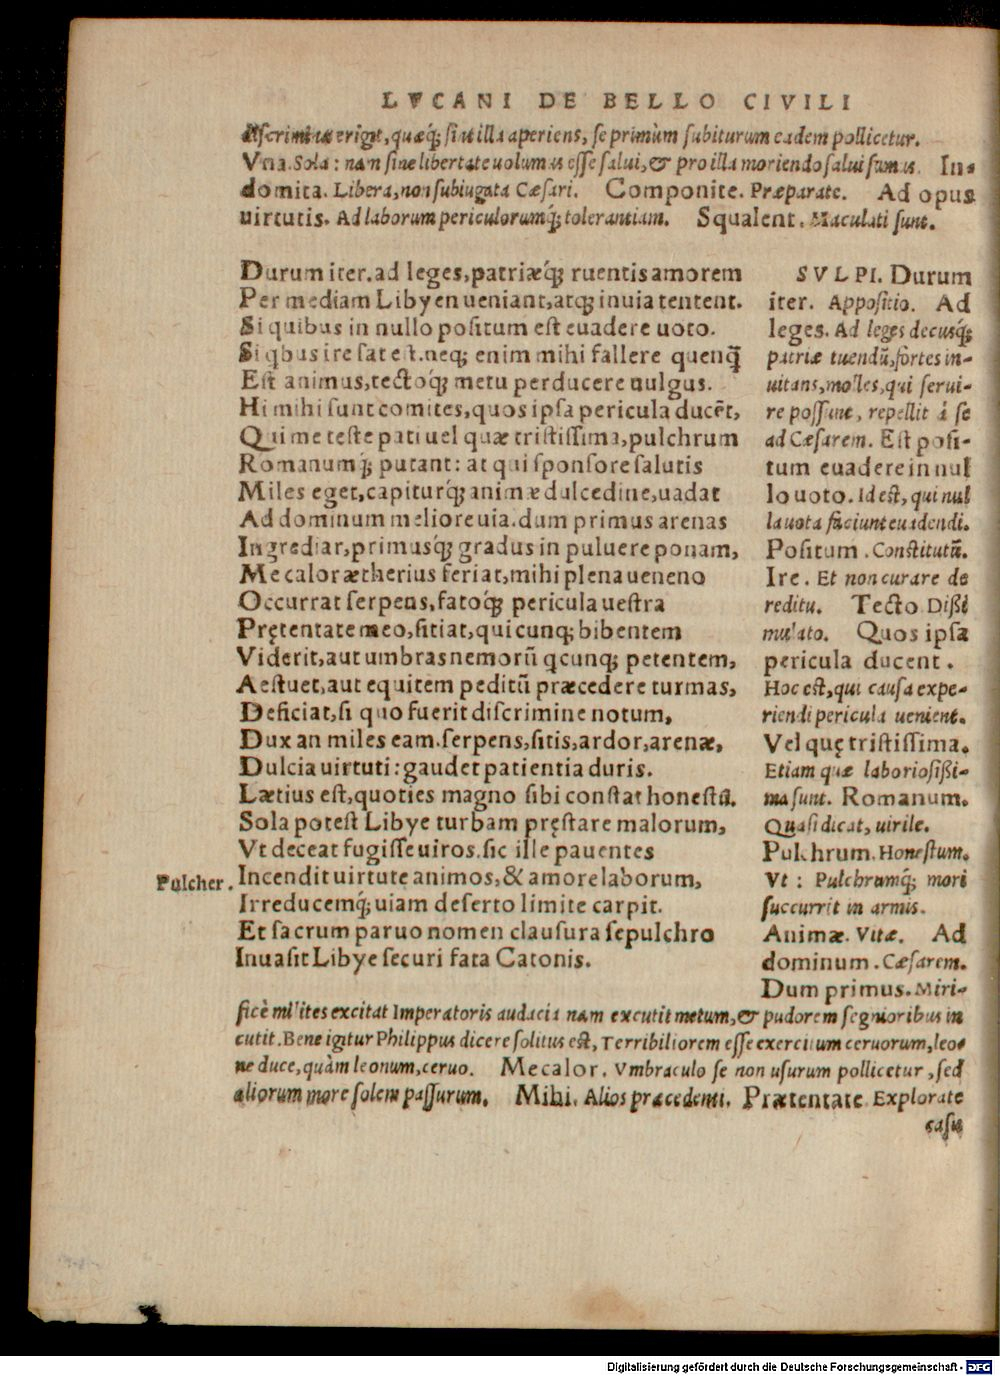 LVCANI DE BELLO CIVILI
discriminaerigit, quæq́; siuilla aperiens, se primùm subiturum eadem pollicetur.
Vna. Sola: nam sine libertate uolumus esse salui, & pro illa moriendo salui sumus. In-
domita. Libera, non subiugata Cæsari. Componite. Præparate. Ad opus
uirtutis. Ad laborum periculorumq́; tolerantiam. Squalent. Maculati sunt.
Durum iter. ad leges, patriæq́; ruentis amorem
Per mediam Libyen ueniant, atq; inuia tentent.
Si quibus in nullo positum est euadere uoto.
Si qbus ire sat est. neq; enim mihi fallere quenq̃
Est animus, tectoq́; metu perducere uulgus.
Hi mihi sunt comites, quos ipsa pericula ducẽt,
Qui me teste pati uel quæ tristissima, pulchrum
Romanumq́; putant: at qui sponsore salutis
Miles eget, capiturq́; animæ dulcedine, uadat
Ad dominum meliore uia. dum primus arenas
Ingrediar, primusq́; gradus in puluere ponam,
Me calor ætherius feriat, mihi plena ueneno
Occurrat serpens, fatoq́; pericula uestra
Prętentate meo, sitiat, quicunq; bibentem
Viderit, aut umbras nemorũ qcunq; petentem,
Aestuet, aut equitem peditũ præcedere turmas,
Deficiat, si quo fuerit discrimine notum,
Dux an miles eam. serpens, sitis, ardor, arenæ,
Dulcia uirtuti: gaudet patientia duris.
Lætius est, quoties magno sibi constat honestũ.
Sola potest Libye turbam pręstare malorum,
Vt deceat fugisse uiros. sic ille pauentes
Pulcher. Incendit uirtute animos, & amore laborum,
Irreducemq́; uiam deserto limite carpit.
Et sacrum paruo nomen clausura sepulchro
Inuasit Libye securi fata Catonis.
SVLPI. Durum
iter. Appositio. Ad
leges. Ad leges decusq́;
patriæ tuendũ, fortes in-
uitans, molles, qui serui-
re possunt, repellit à se
ad Cæsarem. Est posi-
tum euadere in nul
lo uoto. Id est, qui nul
la uota faciunt euadendi.
Positum. Constitutũ.
Ire. Et non curare de
reditu. Tecto Dißi
mulato. Quos ipsa
pericula ducent.
Hoc est, qui causa expe-
riendi pericula uenient.
Vel quę tristissima.
Etiam quæ laboriosißi-
ma sunt. Romanum.
Quasi dicat, uirile.
Pulchrum. Honestum.
Vt: Pulchrumq́; mori
succurrit in armis.
Animæ. Vitæ. Ad
dominum. Cæsarem.
Dum primus. Miri-
ficè milites excitat Imperatoris audacia nam excutit metum, & pudorem segnioribus in
cutit. Bene igitur Philippus dicere solitus est, Terribiliorem esse exercitum ceruorum, leo-
ne duce, quàm leonum, ceruo. Mecalor. Vmbraculo se non usurum pollicetur, sed
aliorum more solem passurum. Mihi. Alios præcedenti. Prætentate Explorate
casu
Digitalisierung gefördert durch die Deutsche Forschungsgemeinschaft - DFG